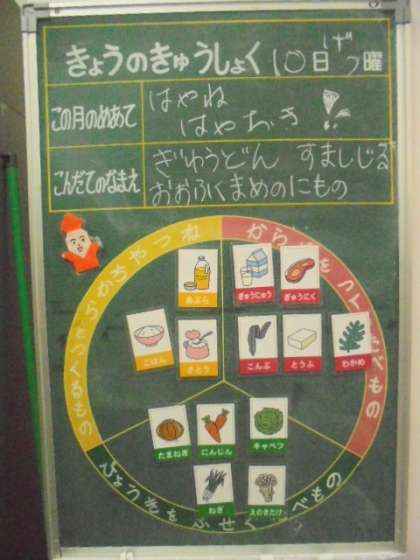 きょうのきゅうしょく 10日 げつ曜
この月のめあて
はやね
はやおき
こんだてのなまえ
ぎゅうどん すましじる
おおふくまめのにもの
ちからやねつ
になるもの
あぶら
ごはん
さとう
ぎゅうにゅう
ぎゅうにく
こんぶ
とうふ
わかめ
たまねぎ
にんじん
キャベツ
ねぎ
えのきたけ
びょうきをふせぐ
べもの